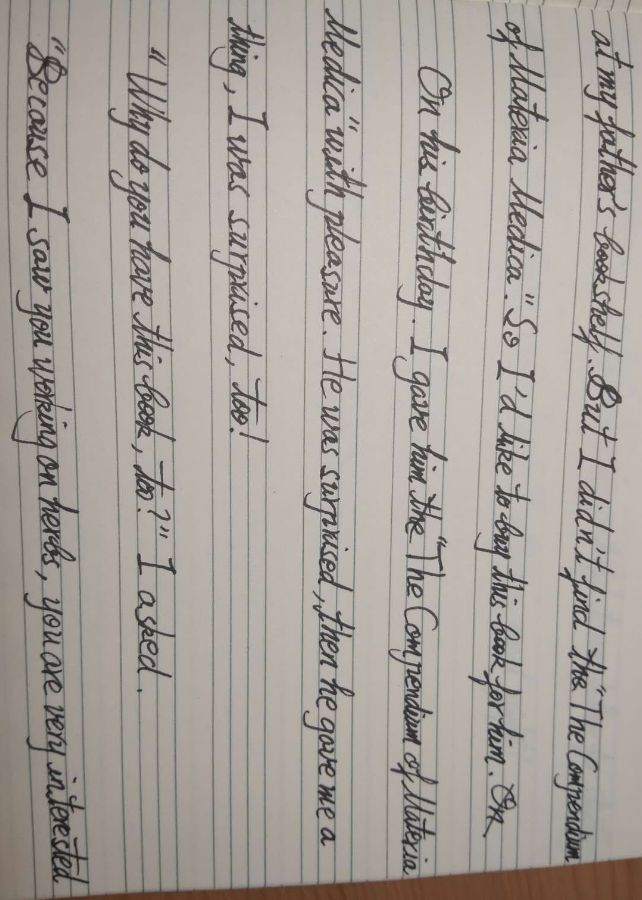 at my father's bookshelf. But I didn't find the "The Compendium
of Materia Medica." So I'd like to buy this book for him. On
On his birthday. I gave him the "The Compendium of Materia
Medica" with pleasure. He was surprised, then he gave me a
thing, I was surprised, too!
"Why do you have this book, too?" I asked.
"Because I saw you working on herbs, you are very interested